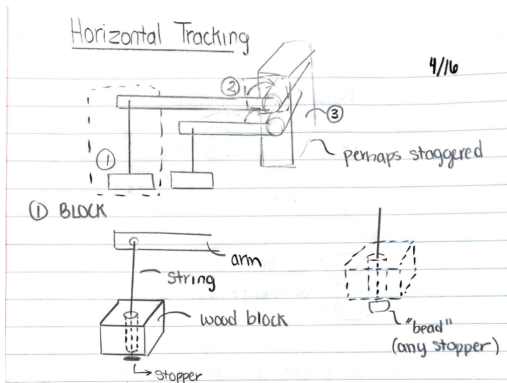 Horizontal Tracking
4/16
②
③
①
perhaps staggered
① BLOCK
arm
string
wood block
→ stopper
"bead"
(any stopper)